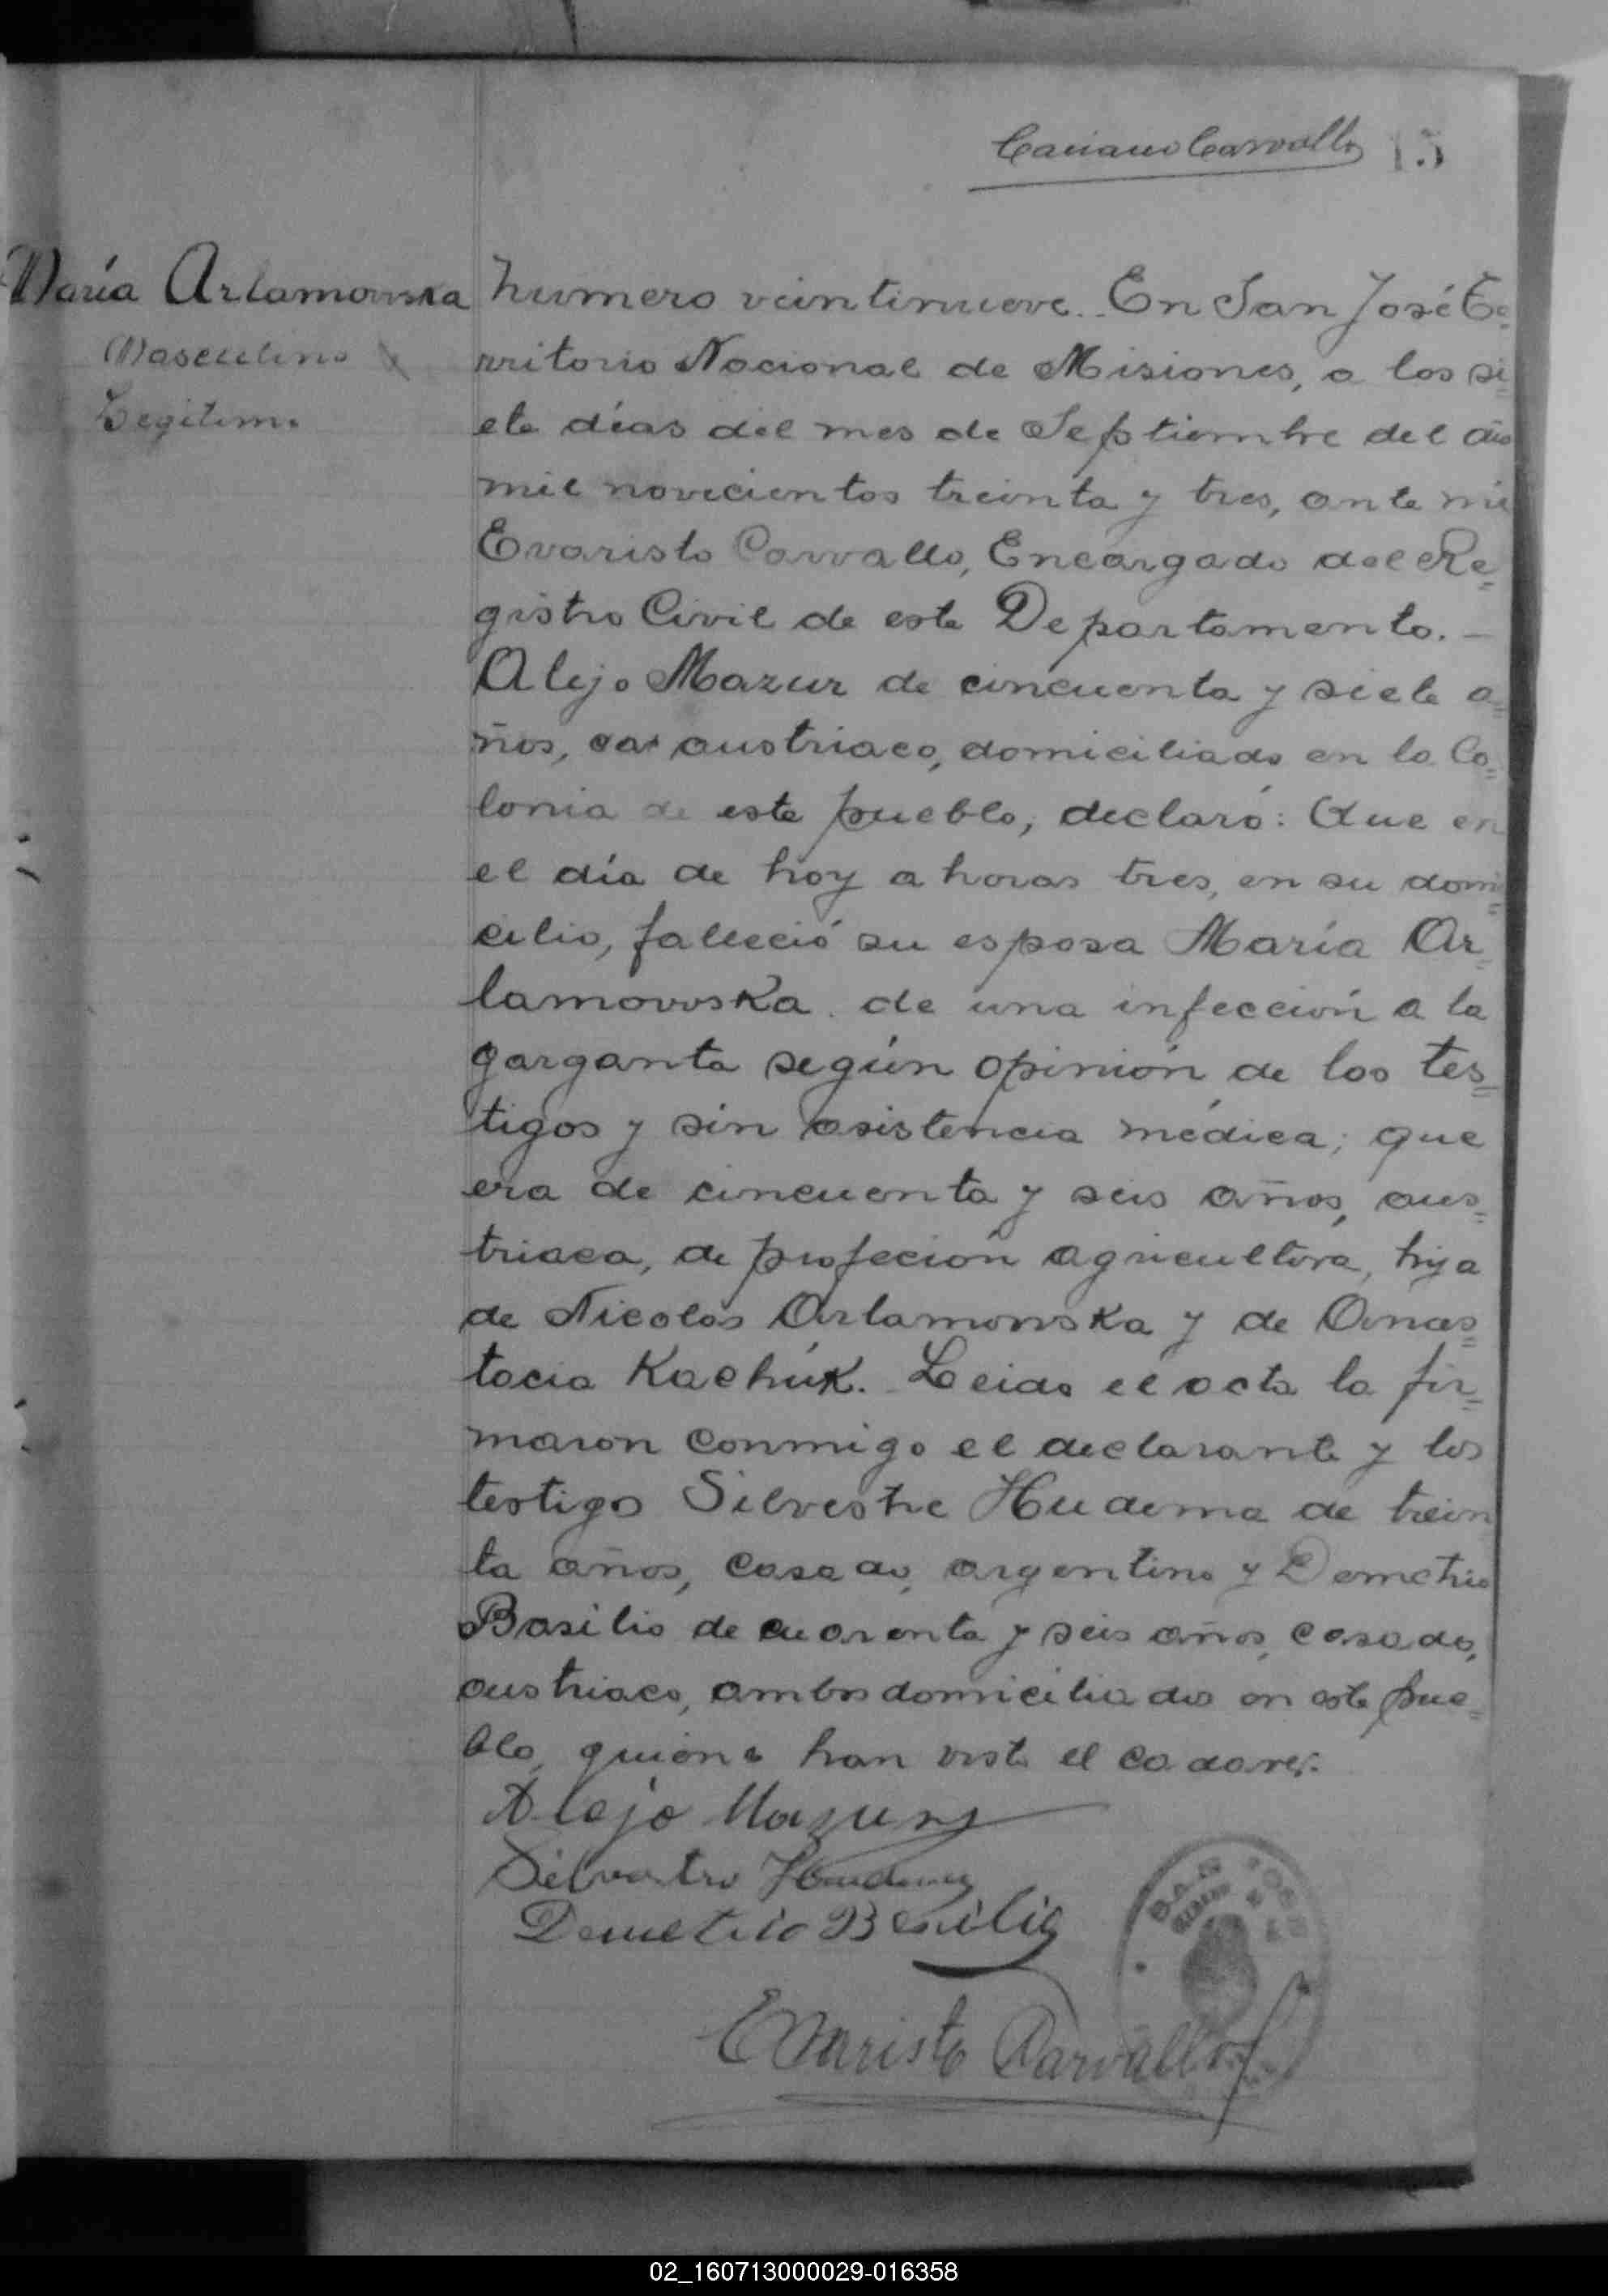 Caciano Carvallo 15
María Arlamowska
Masculino
Legitimo
Numero veintinueve.. En San José Te=
rritorio Nacional de Misiones, a los si=
ete días del mes de Septiembre del año
mil novecientos treinta y tres, ante mi
Evaristo Carvallo, Encargado del Re=
gistro Civil de este Departamento. —
Alejo Mazur de cincuenta y siete a=
ños, cas austriaco, domiciliado en la Co=
lonia de este pueblo, declaró: Que en
el día de hoy a horas tres, en su domi=
cilio, falleció su esposa María Ar=
lamovvska de una infección a la
garganta según opinión de los tes=
tigos y sin asistencia médica; que
era de cincuenta y seis años, aus=
triaca, de profeción agricultora, hija
de Nicolás Arlamowska y de Anas=
tacia Kachúk. Leida el acta la fir=
maron conmigo el declarante y los
testigos Silvestre Hudema de trein
ta años, casado, argentino y Demetrio
Basilio de cuarenta y seis años, casado,
austriaco, ambos domiciliados en este pue=
blo, quienes han visto el cadaver.
Alejo Mazur
Silvestre Hudema
Demetrio Basilio
SAN JOSE
Evaristo Carvallo
02_160713000029-016358